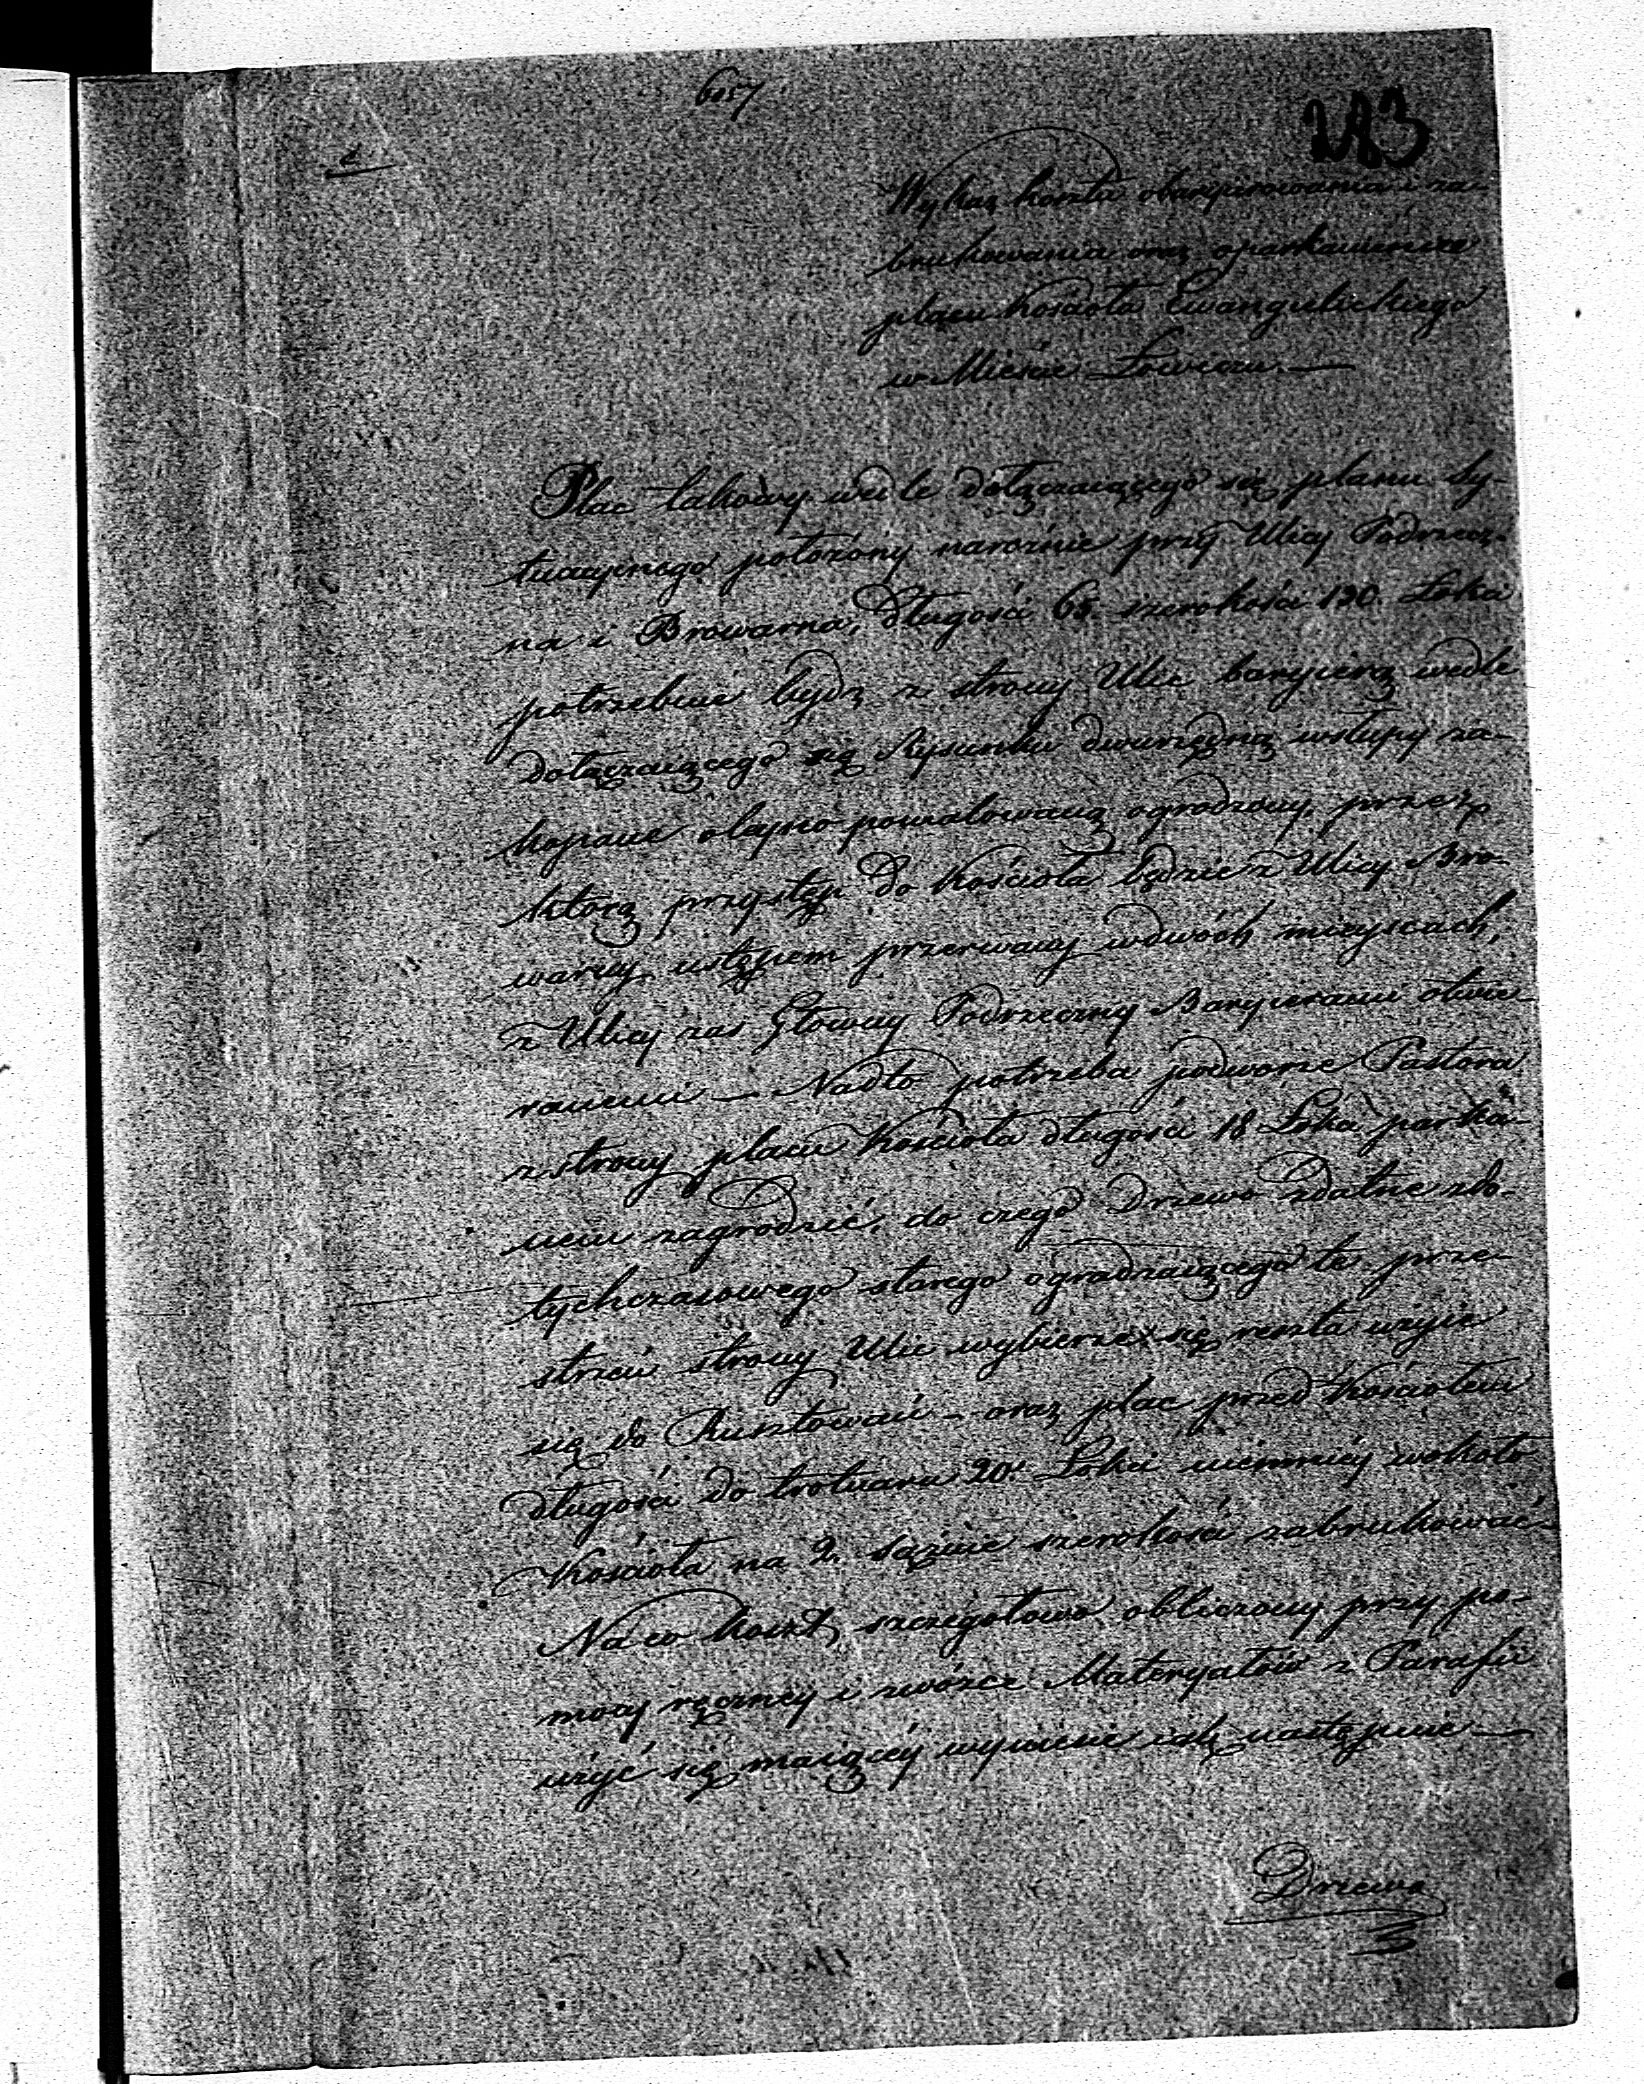 6057
283
Wykaz kosztu obaryerowania i za-
brukowania oraz oparkanienia
placu Kościoła Ewangelickiego
w Mieście Łowiczu. —
Plac takowy wedle dołączaiącego się planu Sy-
tuacyinego położony narożnie przy Ulicy Podrzecz-
na i Browarna, długości 65. szerokości 130. Łokci
potrzebuie bydź z strony Ulic baryierą wedle
dołączaiącego się Rysunku dwurzędną w słupy za-
kopane oleyno pomalowaną ogrodzony, przez
którą przystęp do Kościoła będzie z Ulicy Bro-
warny ustępem przerwany w dwóch mieyscach,
z Ulicy zaś Głowny Podrzeczny Baryierami otwie-
ranemi — Nadto potrzeba podworze Pastora
z strony placu Kościoła długości 18 Łokci parka-
nem zagrodzić, do czego Drzewo zdatne z do-
tychczasowego starego ogradzaiącego te prze-
strzeń strony Ulic wybierze się reszta użyie
się do Rusztowań — oraz plac przed Kościołem
długości do trotuaru 20. Łokci niemniéy wokoło
Kościoła na 2. sążnie szerokości zabrukować —
Na co koszt szczegółowo obliczony przy po-
mocy ręczney i zwózce Materyałów z Parafii
użyć się maiącéy wyniesie iak następuie —
Drzewo